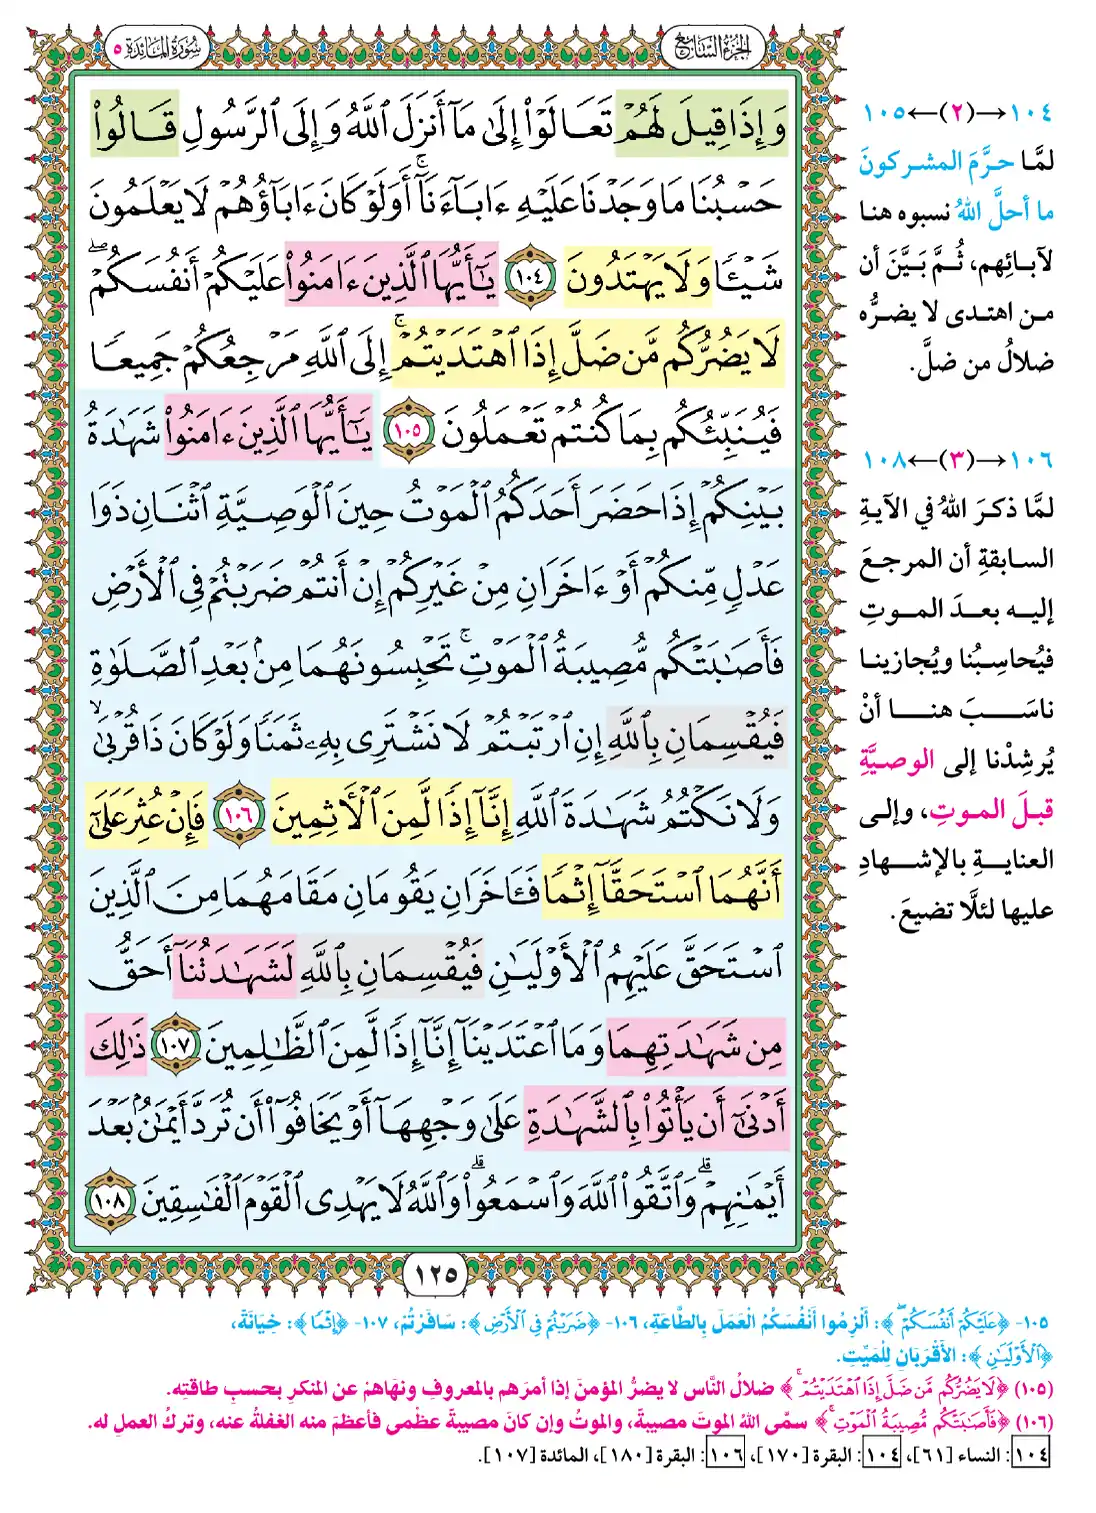 الجزء السابع
سورة المائدة ٥
وَإِذَا قِيلَ لَهُمۡ تَعَالَوۡاْ إِلَىٰ مَآ أَنزَلَ ٱللَّهُ وَإِلَى ٱلرَّسُولِ قَالُواْ
حَسۡبُنَا مَا وَجَدۡنَا عَلَيۡهِ ءَابَآءَنَآۚ أَوَلَوۡ كَانَ ءَابَآؤُهُمۡ لَا يَعۡلَمُونَ
شَيۡـٔٗا وَلَا يَهۡتَدُونَ ١٠٤ يَٰٓأَيُّهَا ٱلَّذِينَ ءَامَنُواْ عَلَيۡكُمۡ أَنفُسَكُمۡۖ
لَا يَضُرُّكُم مَّن ضَلَّ إِذَا ٱهۡتَدَيۡتُمۡۚ إِلَى ٱللَّهِ مَرۡجِعُكُمۡ جَمِيعٗا
فَيُنَبِّئُكُم بِمَا كُنتُمۡ تَعۡمَلُونَ ١٠٥ يَٰٓأَيُّهَا ٱلَّذِينَ ءَامَنُواْ شَهَٰدَةُ
بَيۡنِكُمۡ إِذَا حَضَرَ أَحَدَكُمُ ٱلۡمَوۡتُ حِينَ ٱلۡوَصِيَّةِ ٱثۡنَانِ ذَوَا
عَدۡلٖ مِّنكُمۡ أَوۡ ءَاخَرَانِ مِنۡ غَيۡرِكُمۡ إِنۡ أَنتُمۡ ضَرَبۡتُمۡ فِي ٱلۡأَرۡضِ
فَأَصَٰبَتۡكُم مُّصِيبَةُ ٱلۡمَوۡتِۚ تَحۡبِسُونَهُمَا مِنۢ بَعۡدِ ٱلصَّلَوٰةِ
فَيُقۡسِمَانِ بِٱللَّهِ إِنِ ٱرۡتَبۡتُمۡ لَا نَشۡتَرِي بِهِۦ ثَمَنٗا وَلَوۡ كَانَ ذَا قُرۡبَىٰ وَلَا
نَكۡتُمُ شَهَٰدَةَ ٱللَّهِ إِنَّآ إِذٗا لَّمِنَ ٱلۡأٓثِمِينَ ١٠٦ فَإِنۡ عُثِرَ عَلَىٰٓ
أَنَّهُمَا ٱسۡتَحَقَّآ إِثۡمٗا فَـَٔاخَرَانِ يَقُومَانِ مَقَامَهُمَا مِنَ ٱلَّذِينَ
ٱسۡتَحَقَّ عَلَيۡهِمُ ٱلۡأَوۡلَيَٰنِ فَيُقۡسِمَانِ بِٱللَّهِ لَشَهَٰدَتُنَآ أَحَقُّ
مِن شَهَٰدَتِهِمَا وَمَا ٱعۡتَدَيۡنَآ إِنَّآ إِذٗا لَّمِنَ ٱلظَّٰلِمِينَ ١٠٧ ذَٰلِكَ
أَدۡنَىٰٓ أَن يَأۡتُواْ بِٱلشَّهَٰدَةِ عَلَىٰ وَجۡهِهَآ أَوۡ يَخَافُوٓاْ أَن تُرَدَّ أَيۡمَٰنُۢ بَعۡدَ
أَيۡمَٰنِهِمۡۗ وَٱتَّقُواْ ٱللَّهَ وَٱسۡمَعُواْۗ وَٱللَّهُ لَا يَهۡدِي ٱلۡقَوۡمَ ٱلۡفَٰسِقِينَ ١٠٨
١٢٥
١٠٤→(٢)←١٠٥
لمَّا حرَّمَ المشركونَ
ما أحلَّ اللهُ نسبوه هنا
لآبائِهم، ثُمَّ بَيَّنَ أن
من اهتدى لا يضرُّه
ضلالُ من ضلَّ.
١٠٦→(٣)←١٠٨
لمَّا ذكرَ اللهُ في الآيةِ
السابقةِ أن المرجعَ
إليه بعدَ الموتِ
فيُحاسِبُنا ويُجازينا
ناسَبَ هنا أنْ
يُرشِدْنا إلى الوصيَّةِ
قبلَ الموتِ، وإلى
العنايةِ بالإشهادِ
عليها لئلَّا تضيعَ.
١٠٥- ﴿عَلَيْكُمْ أَنفُسَكُمْ ۖ﴾: أَلْزِمُوا أَنْفُسَكُمْ الْعَمَلَ بِالطَّاعَةِ، ١٠٦- ﴿ضَرَبْتُمْ فِي ٱلْأَرْضِ﴾: سَافَرْتُمْ، ١٠٧- ﴿إِثْمًا﴾: خِيَانَةً،
﴿ٱلْأَوْلَيَٰنِ﴾: الأَقْرَبَانِ لِلْمَيِّتِ.
(١٠٥) ﴿لَا يَضُرُّكُم مَّن ضَلَّ إِذَا ٱهْتَدَيْتُمْ ۚ﴾ ضلالُ النَّاس لا يضرُّ المؤمنَ إذا أمرَهم بالمعروفِ ونهَاهمْ عن المنكرِ بحسبِ طاقتِه.
(١٠٦) ﴿فَأَصَٰبَتْكُم مُّصِيبَةُ ٱلْمَوْتِ ۚ﴾ سمَّى اللهُ الموتَ مصيبةً، والموتُ وإن كانَ مصيبةً عظْمى فأعظمُ منه الغفلةُ عنه، وتركُ العملِ له.
١٠٤: النساء [٦١]، ١٠٤: البقرة [١٧٠]، ١٠٦: البقرة [١٨٠]، المائدة [١٠٧].